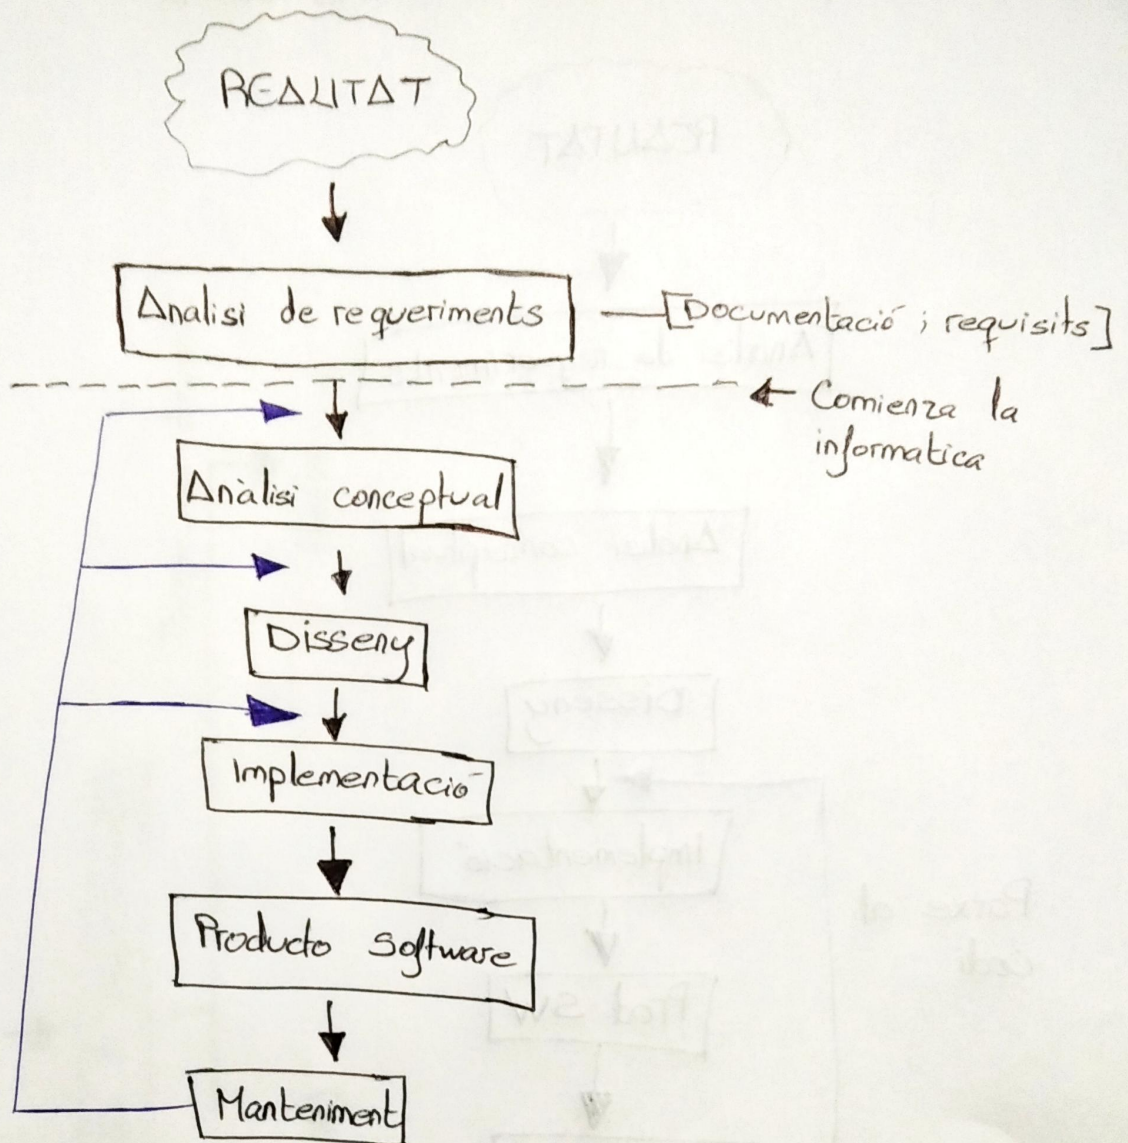 REALITAT
Analisi de requeriments
[Documentació ; requisits]
Comienza la
informatica
Anàlisi conceptual
Disseny
Implementació
Producto software
Manteniment